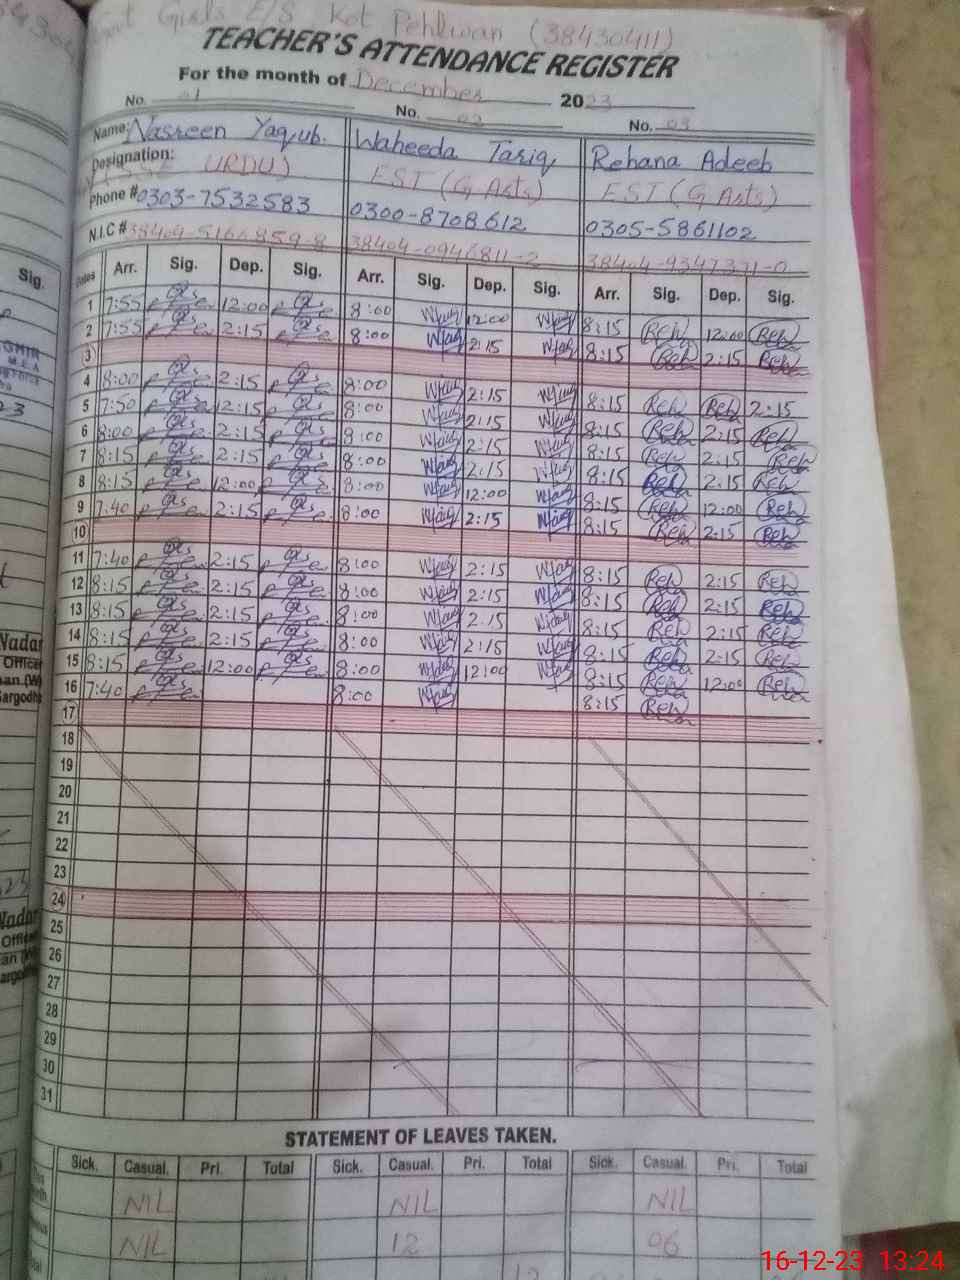 Girls E/S Kot Pehlwan (38430411)
TEACHER'S ATTENDANCE REGISTER
For the month of December 2023
No. 01 No. 02 No. 03
Name: Nasreen Yaqub. Waheeda Tariq Rehana Adeeb
Designation: URDU) EST (G Arts) EST (G Arts)
Phone # 0303-7532583 0300-8708612 0305-5861102
N.I.C # 38404-5166859-8 38404-0946811-2 38404-9347371-0
Dates Arr. Sig. Dep. Sig. Arr. Sig. Dep. Sig. Arr. Sig. Dep. Sig.
1 7:55 12:00 8:00 12:00 8:15 Reh 12:00 Reh
2 7:55 2:15 8:00 2:15 8:15 Reh 2:15 Reh
3
4 8:00 2:15 8:00 2:15 8:15 Reh Reh 2:15
5 7:50 2:15 8:00 2:15 8:15 Reh 2:15 Reh
6 8:00 2:15 8:00 2:15 8:15 Reh 2:15 Reh
7 8:15 2:15 8:00 2:15 8:15 Reh 2:15 Reh
8 8:15 12:00 8:00 12:00 8:15 Reh 12:00 Reh
9 7:40 2:15 8:00 2:15 8:15 Reh 2:15 Reh
10
11 7:40 2:15 8:00 2:15 8:15 Reh 2:15 Reh
12 8:15 2:15 8:00 2:15 8:15 Reh 2:15 Reh
13 8:15 2:15 8:00 2:15 8:15 Reh 2:15 Reh
14 8:15 2:15 8:00 2:15 8:15 Reh 2:15 Reh
15 8:15 12:00 8:00 12:00 8:15 Reh 12:00 Reh
16 7:40 8:00 8:15 Reh
17
18
19
20
21
22
23
24
25
26
27
28
29
30
31
STATEMENT OF LEAVES TAKEN.
Sick. Casual. Pri. Total Sick. Casual. Pri. Total Sick. Casual. Pri. Total
NIL NIL NIL
NIL 12 06
12
Sig.
Nadar
Officer
Nadar
16-12-23 13:24